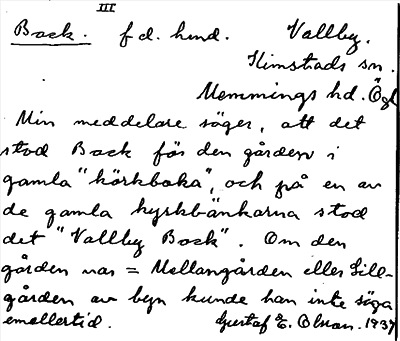 III
Back. f d. hmd. Vallby.
Kimstads sn.
Memmings hd. Ögl
Min meddelare säger, att det
stod Back för den gården i
gamla "körkboka", och på en av
de gamla kyrkbänkarna stod
det "Vallby Back". Om den
gården var = Mellangården eller Lill-
gården av byn kunde han inte säga
emellertid. Gustaf E. Olson. 1937